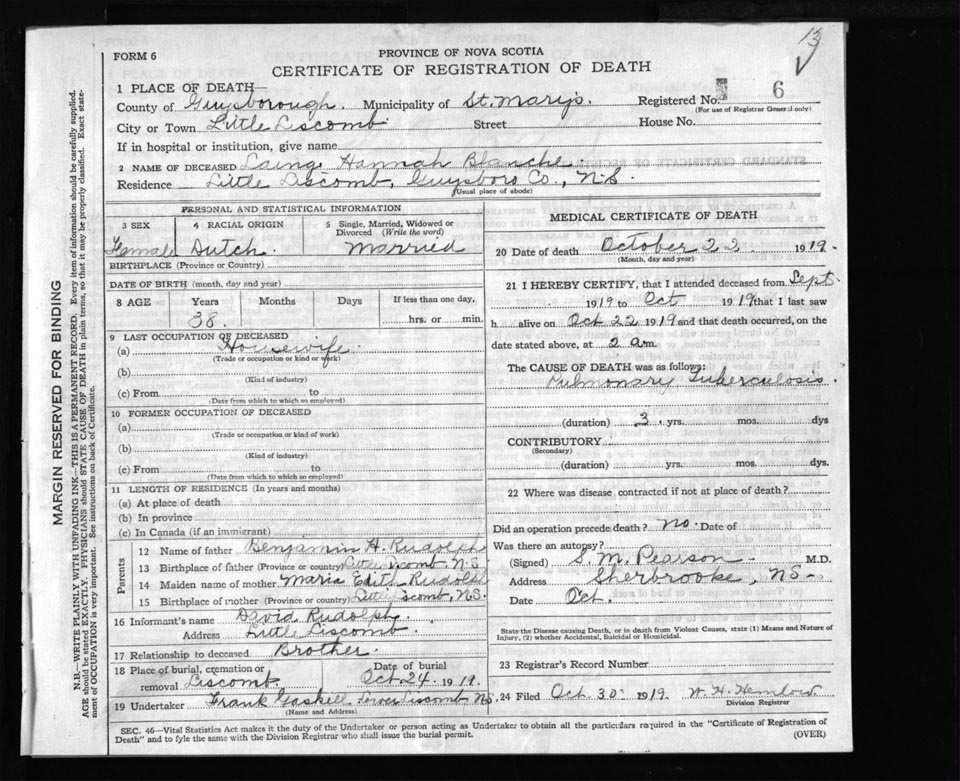 13
FORM 6
PROVINCE OF NOVA SCOTIA
CERTIFICATE OF REGISTRATION OF DEATH
1 PLACE OF DEATH—
County of Guysborough. Municipality of St. Mary's. Registered No. 6
(For use of Registrar General only)
City or Town Little Liscomb Street House No.
If in hospital or institution, give name
2 NAME OF DECEASED Laing, Hannah Blanche.
Residence Little Liscomb, Guysboro Co., N.S.
(Usual place of abode)
PERSONAL AND STATISTICAL INFORMATION
3 SEX 4 RACIAL ORIGIN 5 Single, Married, Widowed or Divorced (Write the word)
Female Dutch. Married
BIRTHPLACE (Province or Country)
DATE OF BIRTH (month, day and year)
8 AGE Years Months Days If less than one day,
38. hrs. or min.
9 LAST OCCUPATION OF DECEASED
(a) Housewife.
(Trade or occupation or kind of work)
(b)
(Kind of industry)
(c) From to
(Date from which to which so employed)
10 FORMER OCCUPATION OF DECEASED
(a)
(Trade or occupation or kind of work)
(b)
(Kind of industry)
(c) From to
(Date from which to which so employed)
11 LENGTH OF RESIDENCE (In years and months)
(a) At place of death
(b) In province
(c) In Canada (if an immigrant)
Parents
12 Name of father Benjamin H. Rudolph
13 Birthplace of father (Province or country) Little Liscomb N.S.
14 Maiden name of mother Maria Edith Rudolph
15 Birthplace of mother (Province or country) Little Liscomb, N.S.
16 Informant's name David Rudolph.
Address Little Liscomb.
17 Relationship to deceased Brother.
18 Place of burial, cremation or Date of burial
removal Liscomb. Oct. 24. 1919.
19 Undertaker Frank Gaskell Liscomb N.S.
(Name and Address)
MEDICAL CERTIFICATE OF DEATH
20 Date of death October 22 1919.
(Month, day and year)
21 I HEREBY CERTIFY, that I attended deceased from Sept.
1919 to Oct 1919 that I last saw
h alive on Oct 22 1919 and that death occurred, on the
date stated above, at 2 a m.
The CAUSE OF DEATH was as follows:
Pulmonary Tuberculosis.
(duration) 3 yrs. mos. dys
CONTRIBUTORY
(Secondary)
(duration) yrs. mos. dys.
22 Where was disease contracted if not at place of death?
Did an operation precede death? no. Date of
Was there an autopsy?
(Signed) S. M. Pearson M.D.
Address Sherbrooke, NS-
Date Oct.
State the Disease causing Death, or in death from Violent Causes, state (1) Means and Nature of
Injury, (2) whether Accidental, Suicidal or Homicidal.
23 Registrar's Record Number
24 Filed Oct. 30 1919. W. H. Hemlow
Division Registrar
SEC. 46—Vital Statistics Act makes it the duty of the Undertaker or person acting as Undertaker to obtain all the particulars required in the "Certificate of Registration of
Death" and to fyle the same with the Division Registrar who shall issue the burial permit. (OVER)
MARGIN RESERVED FOR BINDING
N.B.—WRITE PLAINLY WITH UNFADING INK—THIS IS A PERMANENT RECORD. Every item of information should be carefully supplied.
AGE should be stated EXACTLY. PHYSICIANS should STATE CAUSE OF DEATH in plain terms, so that it may be properly classified. Exact state-
ment of OCCUPATION is very important. See instructions on back of Certificate.